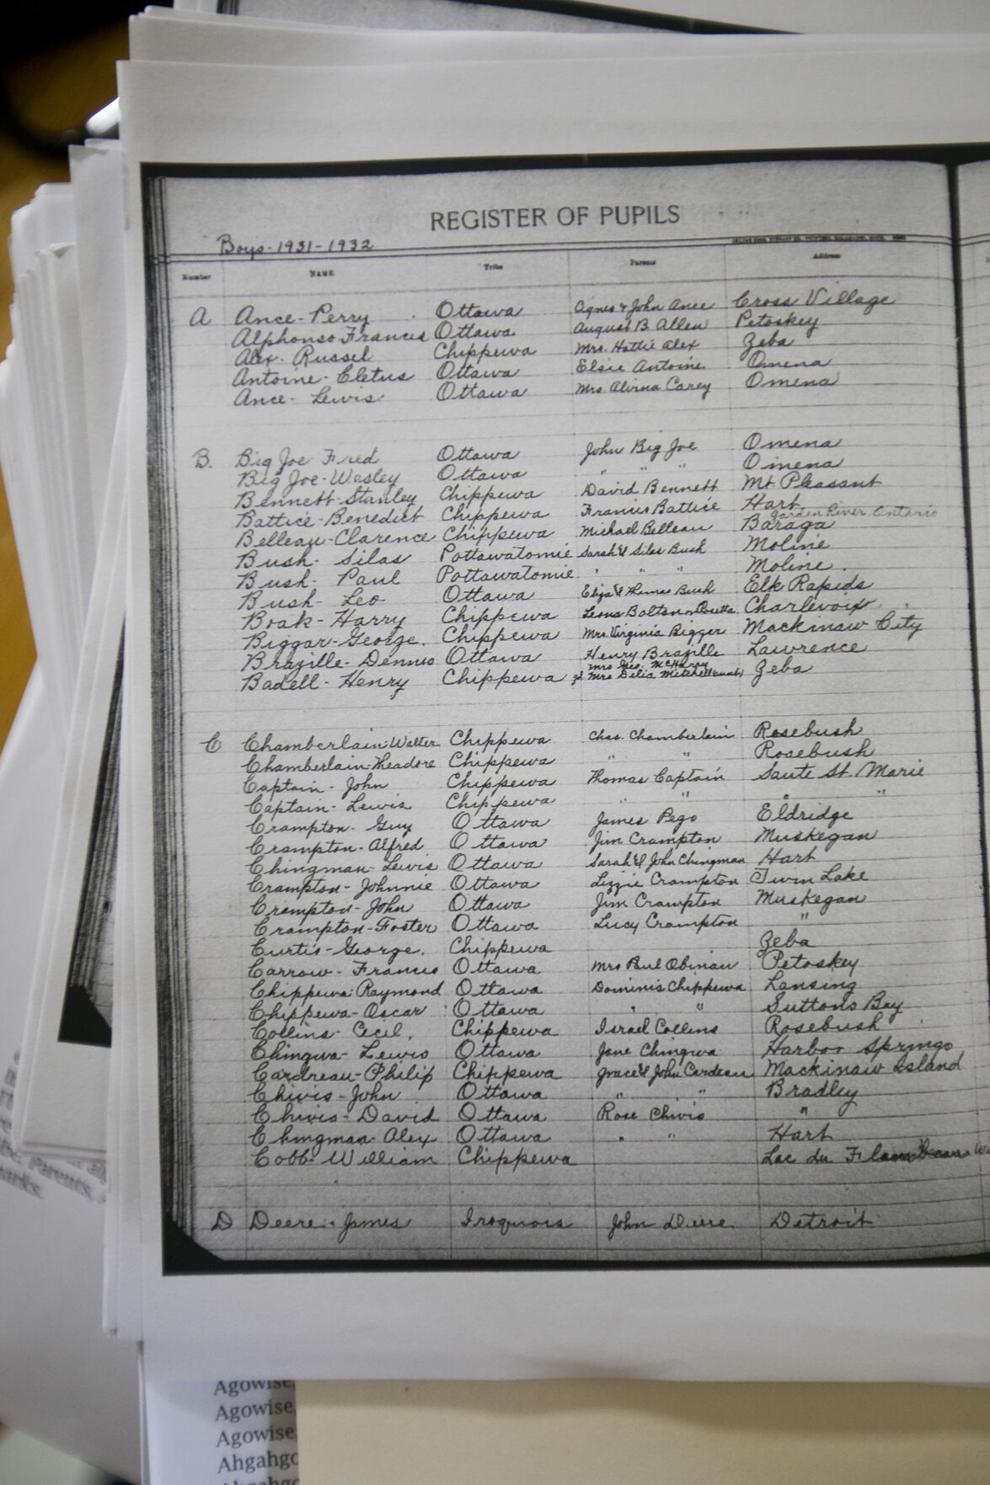 REGISTER OF PUPILS
Boys-1931-1932
Number Name Tribe Parents Address
A Ance-Perry Ottawa Agnes & John Ance Cross Village
Alphonso Francis Ottawa August B. Allen Petoskey
Alex-Russel Chippewa Mrs. Hattie Alex Zeba
Antoine-Cletus Ottawa Elsie Antoine Omena
Ance-Lewis Ottawa Mrs Alvina Carey Omena
B. Big Joe Fred Ottawa John Big Joe Omena
Big Joe-Wesley Ottawa " " " Omena
Bennett-Stanley Chippewa David Bennett Mt Pleasant
Battice-Benedict Chippewa Francis Battice Hart
Garden River Ontario
Belleau-Clarence Chippewa Michael Belleau Baraga
Bush-Silas Pottawatomie Sarah & Silas Bush Moline
Bush-Paul Pottawatomie " " " Moline.
Bush-Leo Ottawa Eliza & Bush Elk Rapids
Boak-Harry Chippewa Leona Bolton Charlevoix
Biggar-George. Chippewa Mrs. Virginia Bigger Mackinaw City
Brazille-Dennis Ottawa Henry Brazille Lawrence
Mrs Geo. McHarry
Badell-Henry Chippewa Mrs Delia Mitchell (aunt) Zeba
C Chamberlain Walter Chippewa Chas. Chamberlain Rosebush
Chamberlain-Theadore Chippewa " " Rosebush
Captain-John Chippewa Thomas Captain Saute St. Marie
Captain-Lewis Chippewa " " " "
Crampton-Guy Ottawa James Pego Eldridge
Crampton-Alfred Ottawa Jim Crampton Muskegan
Chingman-Lewis Ottawa Sarah & John Chingman Hart
Crampton-Johnnie Ottawa Lizzie Crampton Twin Lake
Crampton-John Ottawa Jim Crampton Muskegan
Crampton-Foster Ottawa Lucy Crampton "
Curtis-George. Chippewa Zeba
Carrow-Francis Ottawa Mrs Paul Obinaw Petoskey
Chippewa-Raymond Ottawa Dominis Chippewa Lansing
Chippewa-Oscar Ottawa " " Suttons Bay
Collins-Cecil. Chippewa Israel Collins Rosebush
Chingwa-Lewis Ottawa Jane Chingwa Harbor Springs
Cardreau-Philip Chippewa Grace & John Cardeau Mackinaw Island
Chivis-John Ottawa " " Bradley
Chivis-David Ottawa Rose Chivis "
Chingman-Alex Ottawa " " Hart
Cobb-William Chippewa Lac du Flambeau
D Deere-James Iroquois John Deere. Detroit
Agowise,
Agowise,
Agowise,
Ahgahgo